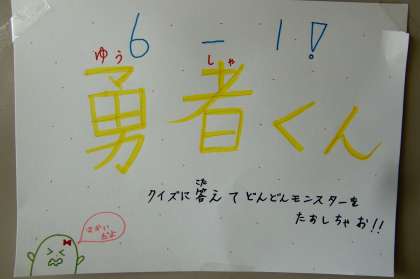 6-1!
ゆう しゃ
勇者くん
こた
クイズに答えてどんどんモンスターを
たおしちゃお!!